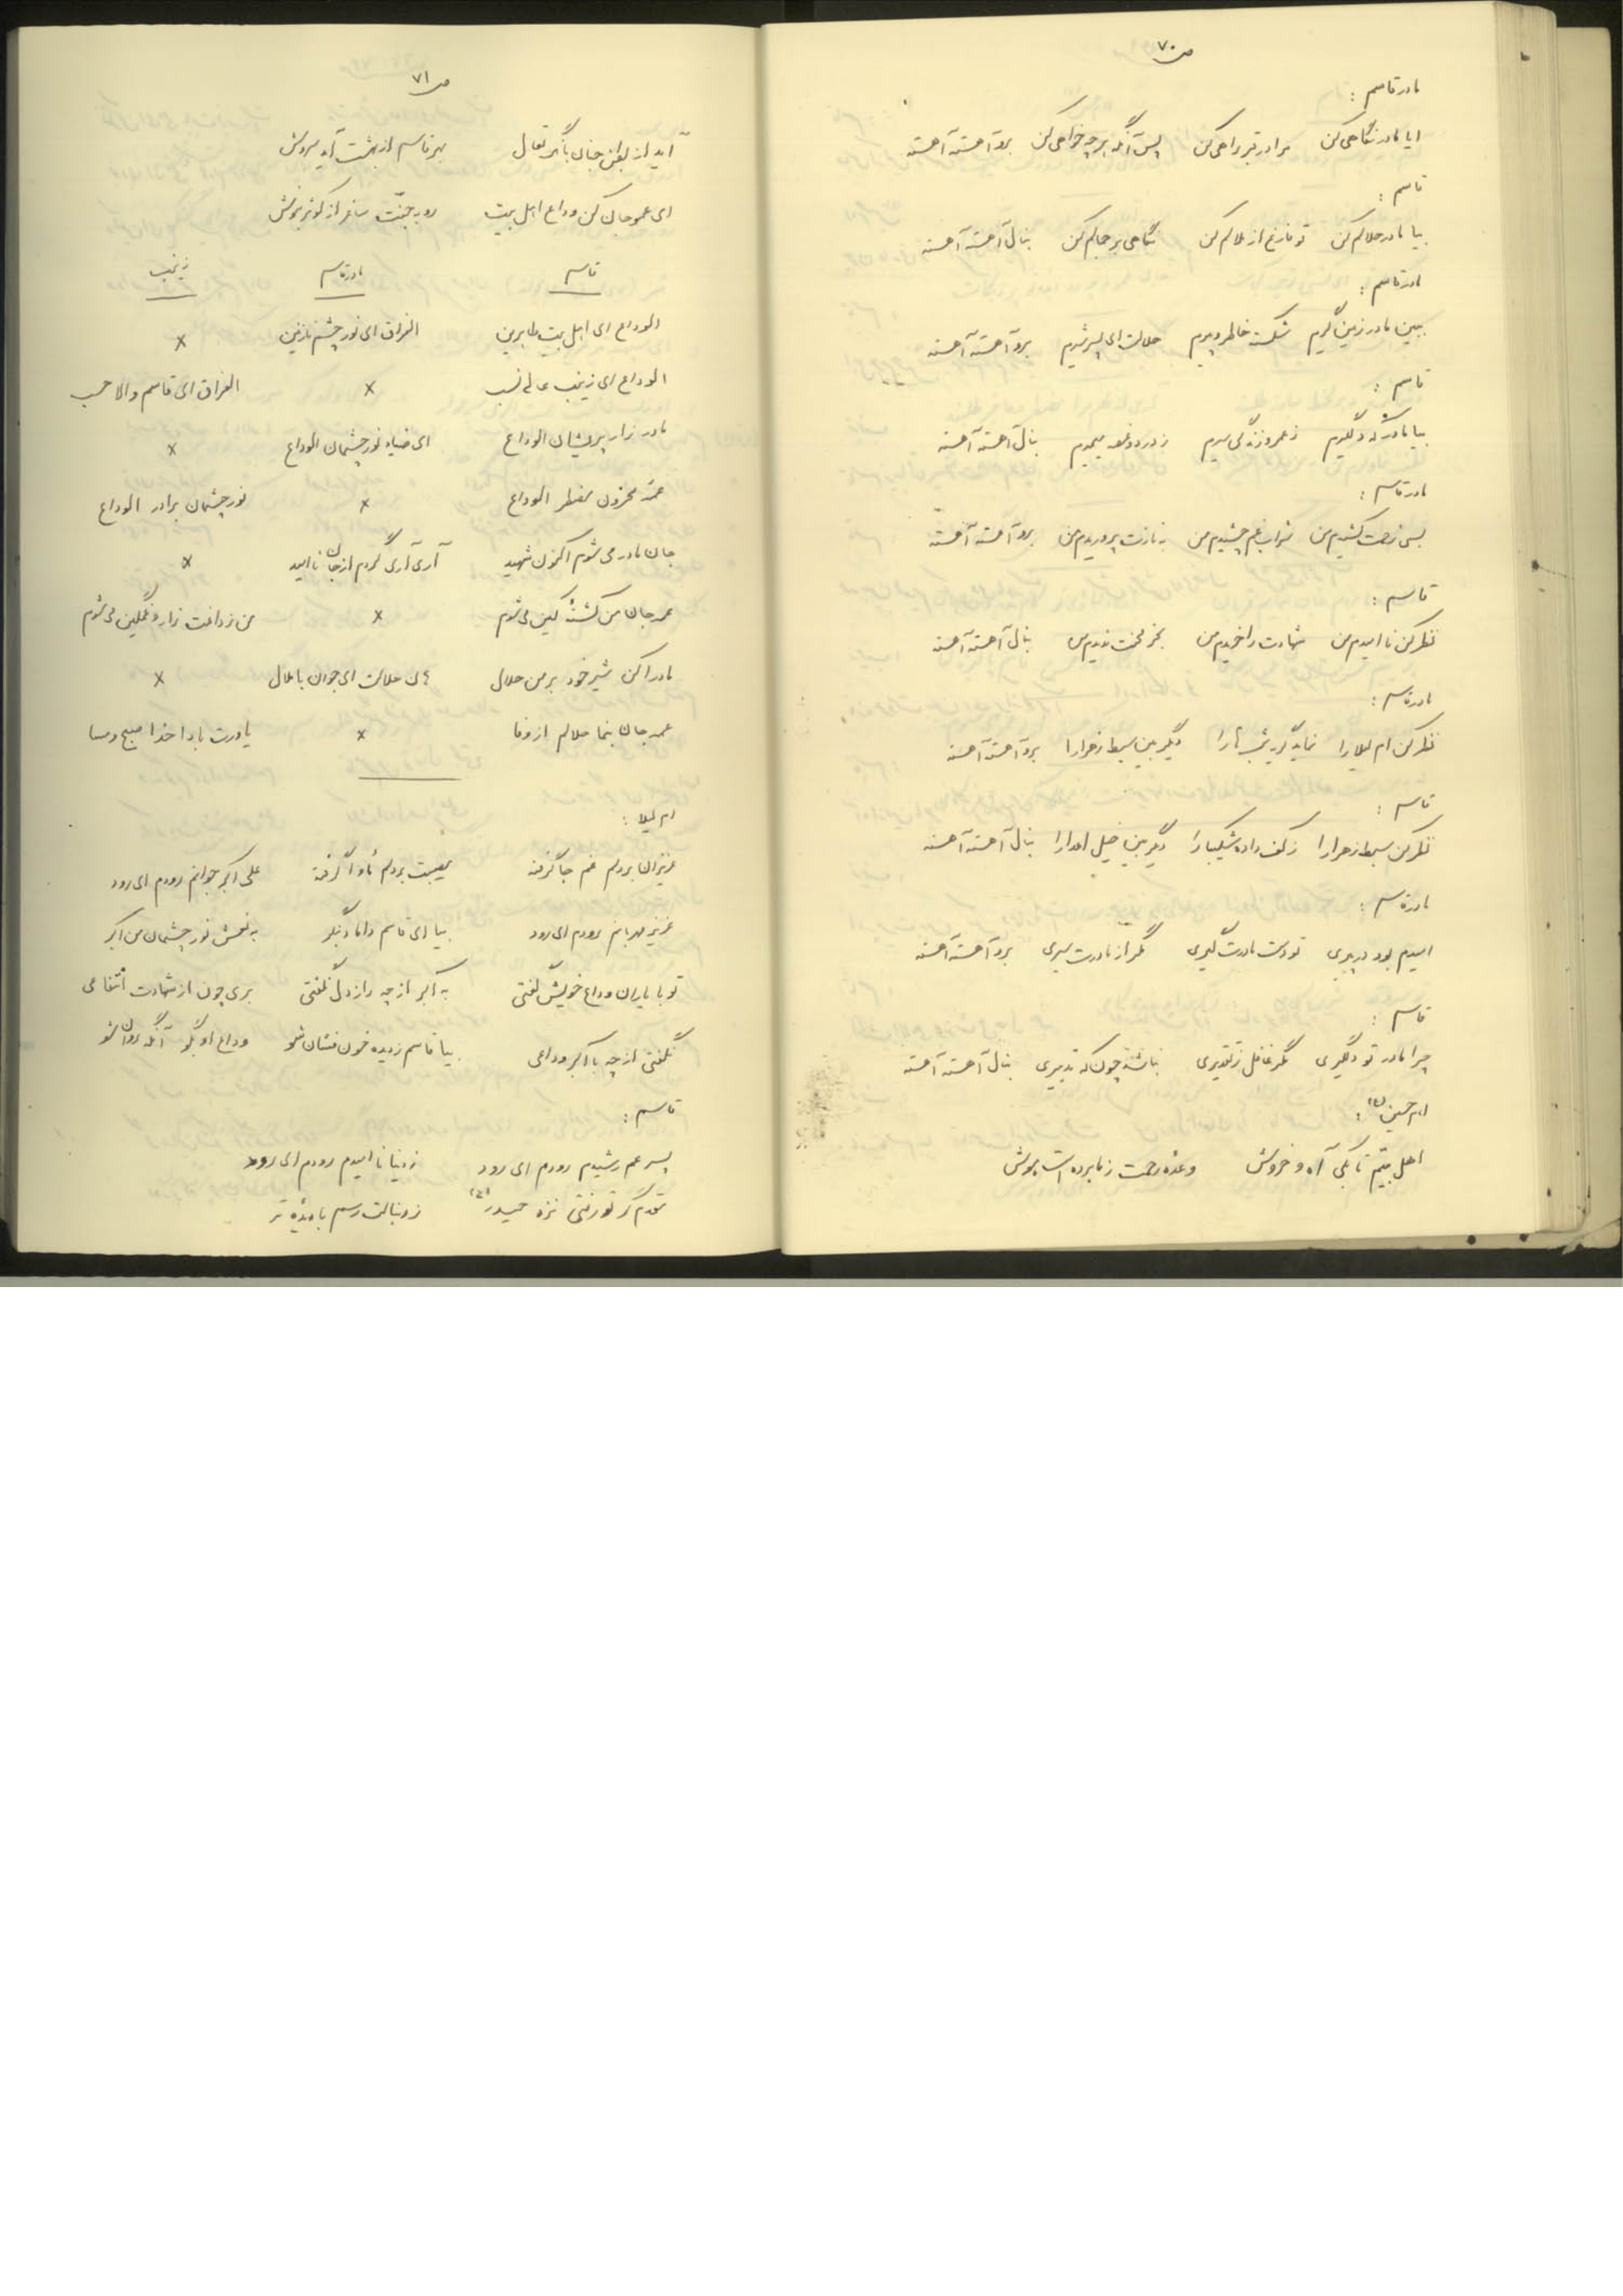 ص ۷۰
مادر قاسم :
ایا مادر نگاهی کن مرا در قبر راهی کن پس آنگه هر چه خواهی کن برو آهسته آهسته
قاسم :
بیا مادر حلالم کن تو فارغ از ملالم کن نگاهی بر جمالم کن بنال آهسته آهسته
مادر قاسم :
ببین مادر زمین گیرم شکسته خاطر و پیرم حلالت ای پسر شیرم برو آهسته آهسته
قاسم :
بیا مادر که دلگیرم ز عمر و زندگی سیرم ز درد و غصه میمیرم بنال آهسته آهسته
مادر قاسم :
بسی زحمت کشیدم من شراب غم چشیدم من به نازت پروریدم من برو آهسته آهسته
قاسم :
نظر کن نا امیدم من شهادت را خریدم من بجز محنت ندیدم من بنال آهسته آهسته
مادر قاسم :
نظر کن ام لیلا را نماید گریه شب ها را دیگر بین سبط زهرا را برو آهسته آهسته
قاسم :
نظر کن سبط زهرا را ز کف داده شکیبا را دیگر بین خیل اعدا را بنال آهسته آهسته
مادر قاسم :
امیدم بود در پیری تو دست مادرت گیری مگر از مادرت سیری برو آهسته آهسته
قاسم :
چرا مادر تو دلگیری مگر غافل ز تقدیری نباشد چون که تدبیری بنال آهسته آهسته
امام حسین (ع) :
اهل بیتم تا بکی آه و خروش وعده رحمت ز ما برده است هوش
ص ۷۱
آید از بطن جنان بانگ تعال بهر قاسم از بهشت آید سروش
ای عمو جان کن وداع اهل بیت رو به جنت ساغر از کوثر بنوش
قاسم مادر قاسم زینب
الوداع ای اهل بیت طاهرین الفراق ای نور چشم نازنین ×
الوداع ای زینب عالی نسب × الفراق ای قاسم والا حسب
مادر زار پریشان الوداع ای ضیاء نور چشمان الوداع ×
عمه محزون مضطر الوداع × نور چشمان برادر الوداع
جان مادر می شوم اکنون شهید آری آری گردم از جان نا امید ×
عمه جان من کشته کین می شوم × من ز داغت زار و غمگین می شوم
مادرا کن شیر خود بر من حلال حلالت ای جوان با ملال ×
عمه جان بنما حلالم از وفا × یاورت بادا خدا صبح و مسا
ام لیلا :
عزیزان بر دلم غم جا گرفته مصیبت بر دلم مأوا گرفته علی اکبر جوانم رودم ای رود
عزیز مهربانم رودم ای رود بیا ای قاسم داماد بنگر به نعش نور چشمان من اکبر
تو با یاران وداع خویش گفتی به اکبر از چه راز دل نگفتی بری چون از شهادت انتفاعی
نگفتی از چه با اکبر وداعی بیا قاسم ز دیده خون فشان شو وداع او بگو آنگه روان شو
قاسم :
پسر عم رشیدم رودم ای رود ز دنیا نا امیدم رودم ای رود
تقدم گر تو رفتی نزد حیدر (ع) ز دنبالت رسم با دیده تر